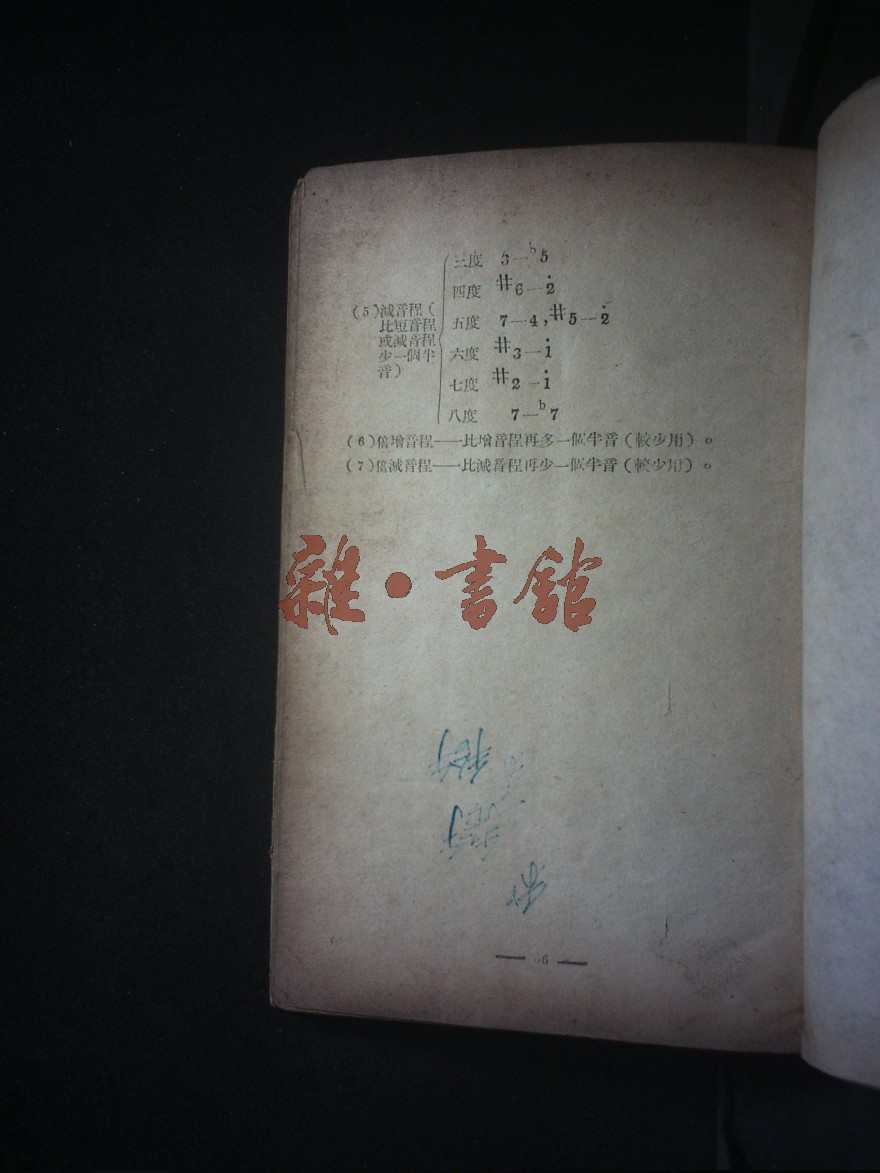 三度 3—♭5
四度 ♯6—2̇
(5)減音程(
比短音程
或減音程
少一個半
音)
五度 7—4,♯5—2̇
六度 ♯3—1̇
七度 ♯2—1̇
八度 7—♭7
(6)倍增音程——比增音程再多一個半音(較少用)。
(7)倍減音程——比減音程再少一個半音(較少用)。
雜·書館